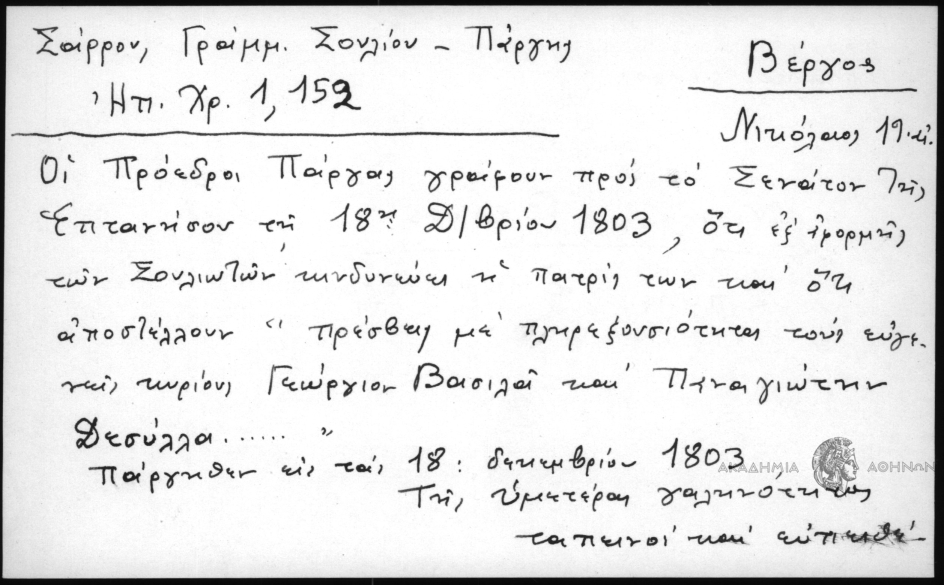 Σάρρου, Γραμμ. Σουλίου - Πάργης
Ἠπ. Χρ. 1, 152
Βέργος
Νικόλαος 19.αἰ.
Οἱ Πρόεδροι Πάργας γράφουν πρὸς τὸ Σενάτον Τῆς
Ἑπτανήσου τῇ 18ῃ Δ/βρίου 1803, ὅτι ἐξ ἀφορμῆς
τῶν Σουλιωτῶν κινδυνεύει ἡ πατρίς των καὶ ὅτι
ἀποστέλλουν " πρέσβεις μὲ πληρεξουσιότητα τοὺς εὐγε-
νεῖς κυρίους Γεώργιον Βασιλᾶ καὶ Παναγιώτην
Δεσύλλα...... "
Πάργηθεν εἰς τὰς 18: δεκεμβρίου 1803
ΑΚΑΔΗΜΙΑ ΑΘΗΝΩΝ
Τῆς ὑμετέρας γαληνότητος
ταπεινοὶ καὶ εὐπειθέ-